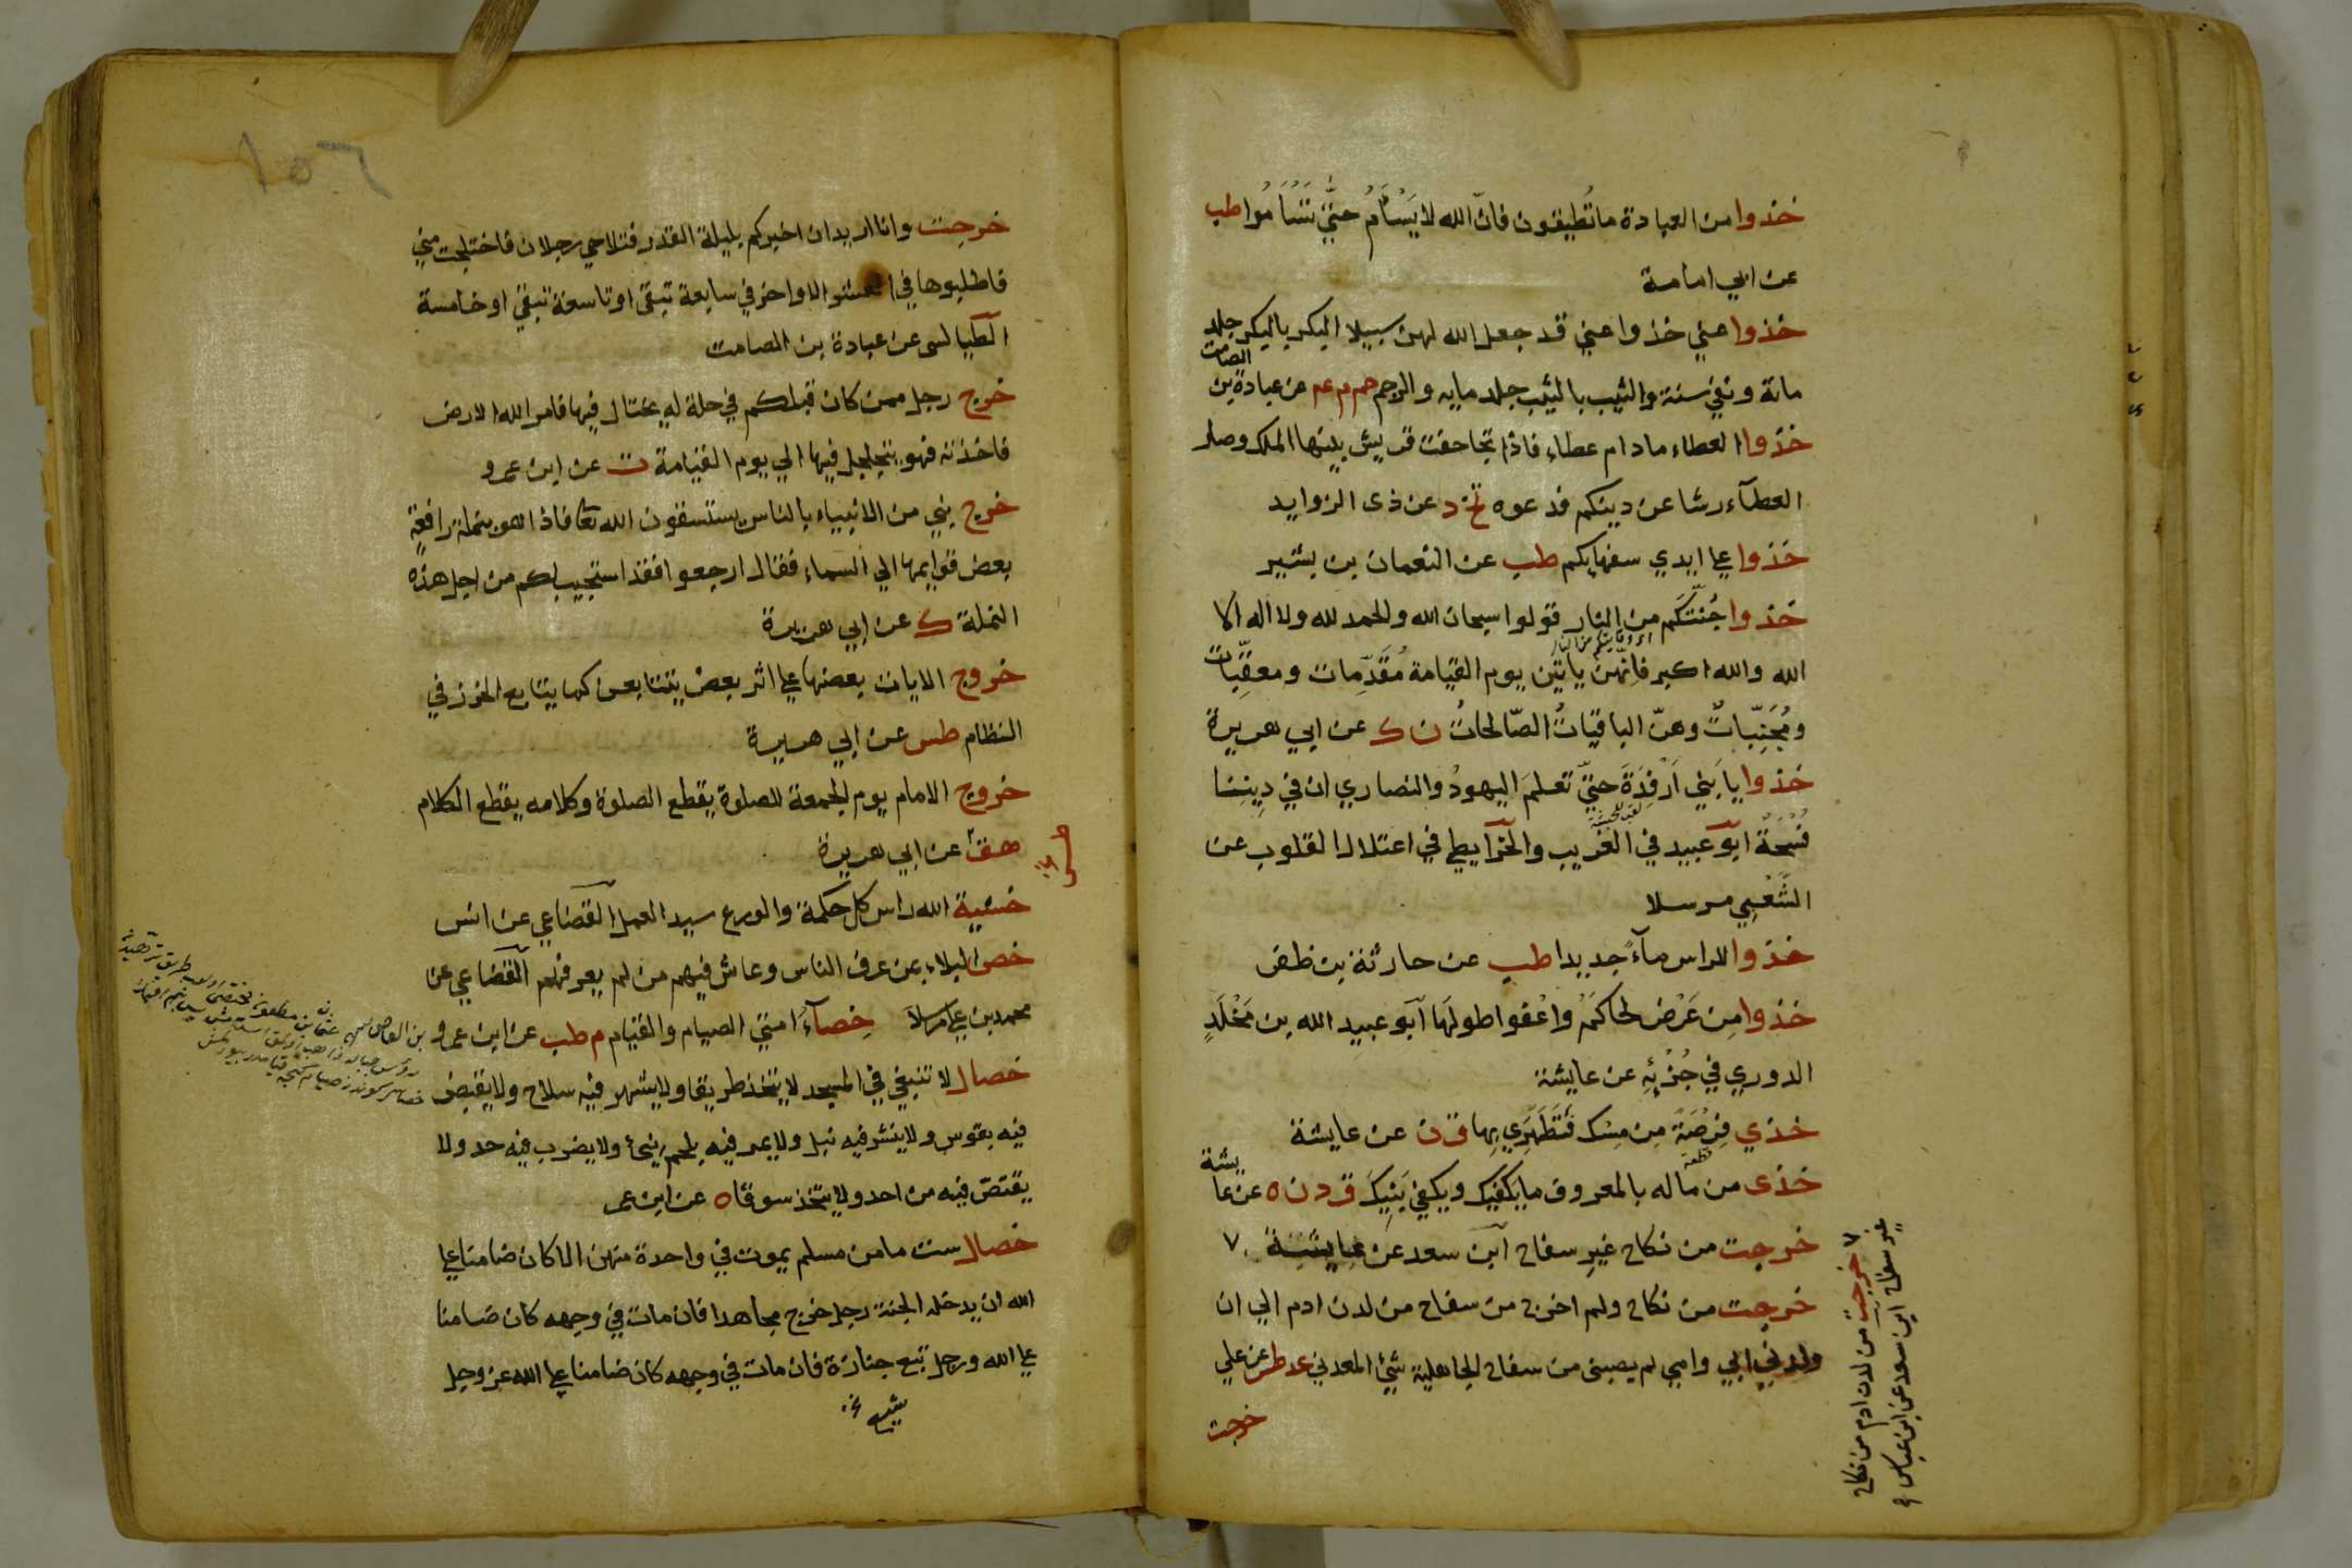 خذوا من العبادة ما تُطيقون فانّ الله لا يَسْأَمُ حتّى تَسْأَمُوا طب
عن ابي امامة
خذوا عني خذوا عني قد جعل الله لهن سبيلا البكر بالبكر جلد
مائة ونفي سنة والثيب بالثيب جلد مايه والرجم حم م عم عن عبادة بن الصامت
خذوا العطاء مادام عطاء فاذا تجاحفت قريش بينها الملك وصار
العطآء رشا عن دينكم فدعوه تخ د عن ذى الزوايد
خذوا علي ايدي سفهايكم طب عن النعمان بن بشير
خذوا جُنّتَكم من النار قولوا سبحان الله والحمد لله ولا اله الا
الله والله اكبر فانّهن ياتين يوم القيامة مُقَدِّمات ومعقِّبات
ومُجَنِّبات وهنّ الباقياتُ الصّالحاتُ ن ك عن ابي هريرة
خذوا يا بَني اَرْفِدَةَ حتّى تعلمَ اليهودُ والنصاري ان في دِينِنا
فُسْحَةً ابو عبيد في الغريب والخرايطي في اعتلال القلوب عن
الشَّعْبِي مرسلا
خذوا للراس مآءً جديدا طب عن حارثة بن ظفر
خذوا مِن عَرْض لحاكُمْ واعْفوا طولَها ابو عبيد الله بن مَخْلَدٍ
الدوري في جُزْئِهِ عن عايشة
خذي فِرْصَةً مِن مِسْك فَتَطَهَّرِي بِها ق ن عن عايشة
قطعة
خذى من ماله بالمعروف ما يكفيك ويكفي بَنِيكِ ق د ن ه عن عايشة
خرجت من نكاح غيرِ سفاح ابن سعد عن عايشة ٧
خرجت من نكاح ولم اخرج من سفاح من لدن ادم الي ان
ولدني ابي وامي لم يصبنى من سفاح الجاهلية شئ المعدني عد طس عن علي
خرجت
٧ خرجت من لدن ادم من نكاح
غير سفاح ابن سعد عن ابن عباس
١٥٦
خرجت وانا اريد ان اخبركم بليلة القدر فتلاحي رجلان فاختلجت مني
فاطلبوها في العشر الاواخر في سابعة تبقى او تاسعة تبقي او خامسة
الطيالسى عن عبادة بن الصامت
خرج رجل ممن كان قبلكم في حلة له يختال فيها فامر الله الارض
فاخذته فهو يتجلجل فيها الي يوم القيامة ت عن ابن عمرو
خرج نبي من الانبياء بالناس يستسقون الله تعا فاذا هو بنملة رافعة
بعض قوايمها الي السماء فقال ارجعوا فقد استجيب لكم من اجل هذه
النملة ك عن ابي هريرة
خروج الايات بعضها علي اثر بعض يتتابعن كما يتتابع الخرز في
النظام طس عن ابي هريرة
خروج الامام يوم الجمعة للصلوة يقطع الصلوة وكلامه يقطع الكلام
هق عن ابي هريرة
خشية الله راس كل حكمة والورع سيد العمل القضاعي عن انس
خص البلاء بمن عرف الناس وعاش فيهم من لم يعرفهم القضاعي عن
محمد بن علي مرسلا خِصآءُ امتي الصيام والقيام م طب عن ابن عمرو بن العاص
خصال لا تنبغي في المسجد لا يتخذ طريقا ولا يشهر فيه سلاح ولا يقبض
فيه بقوس ولا ينشر فيه نبل ولا يمر فيه بلحم نئ ولا يضرب فيه حد ولا
يقتصّ فيه من احد ولا يتخذ سوقا ه عن ابن عمر
خصال ست ما من مسلم يموت في واحدة منهن الا كان ضامنا علي
الله ان يدخله الجنة رجل خرج مجاهدا فان مات في وجهه كان ضامنا
علي الله ورجل تبع جنازة فان مات في وجهه كان ضامنا علي الله عز وجل